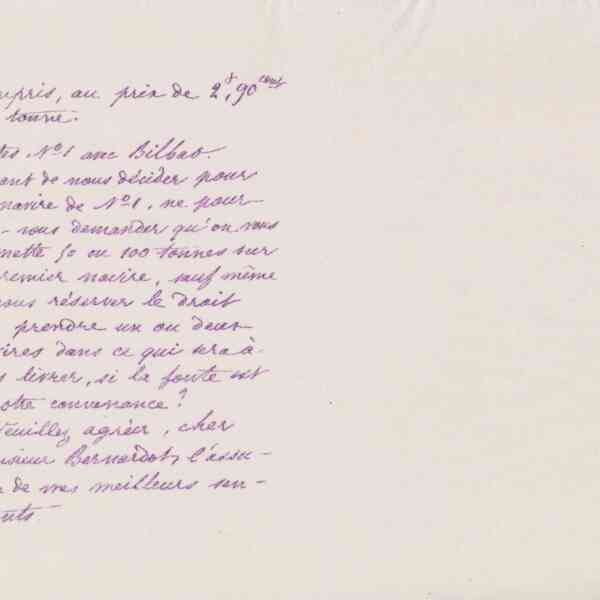 mpris, au prix de 2f,90 cent
tonne.
tes No1 avec Bilbao.
ant de nous décider pour
navire de No1, ne pour-
- vous demander qu'on vous
mette 50 ou 100 tonnes sur
remier navire, sauf même
vous réserver le droit
prendre un ou deux
ires dans ce qui sera à
s livrer, si la fonte est
otre convenance ?
Veuillez agréer, cher
nsieur Bernardot, l'assu-
de mes meilleurs sen-
nts